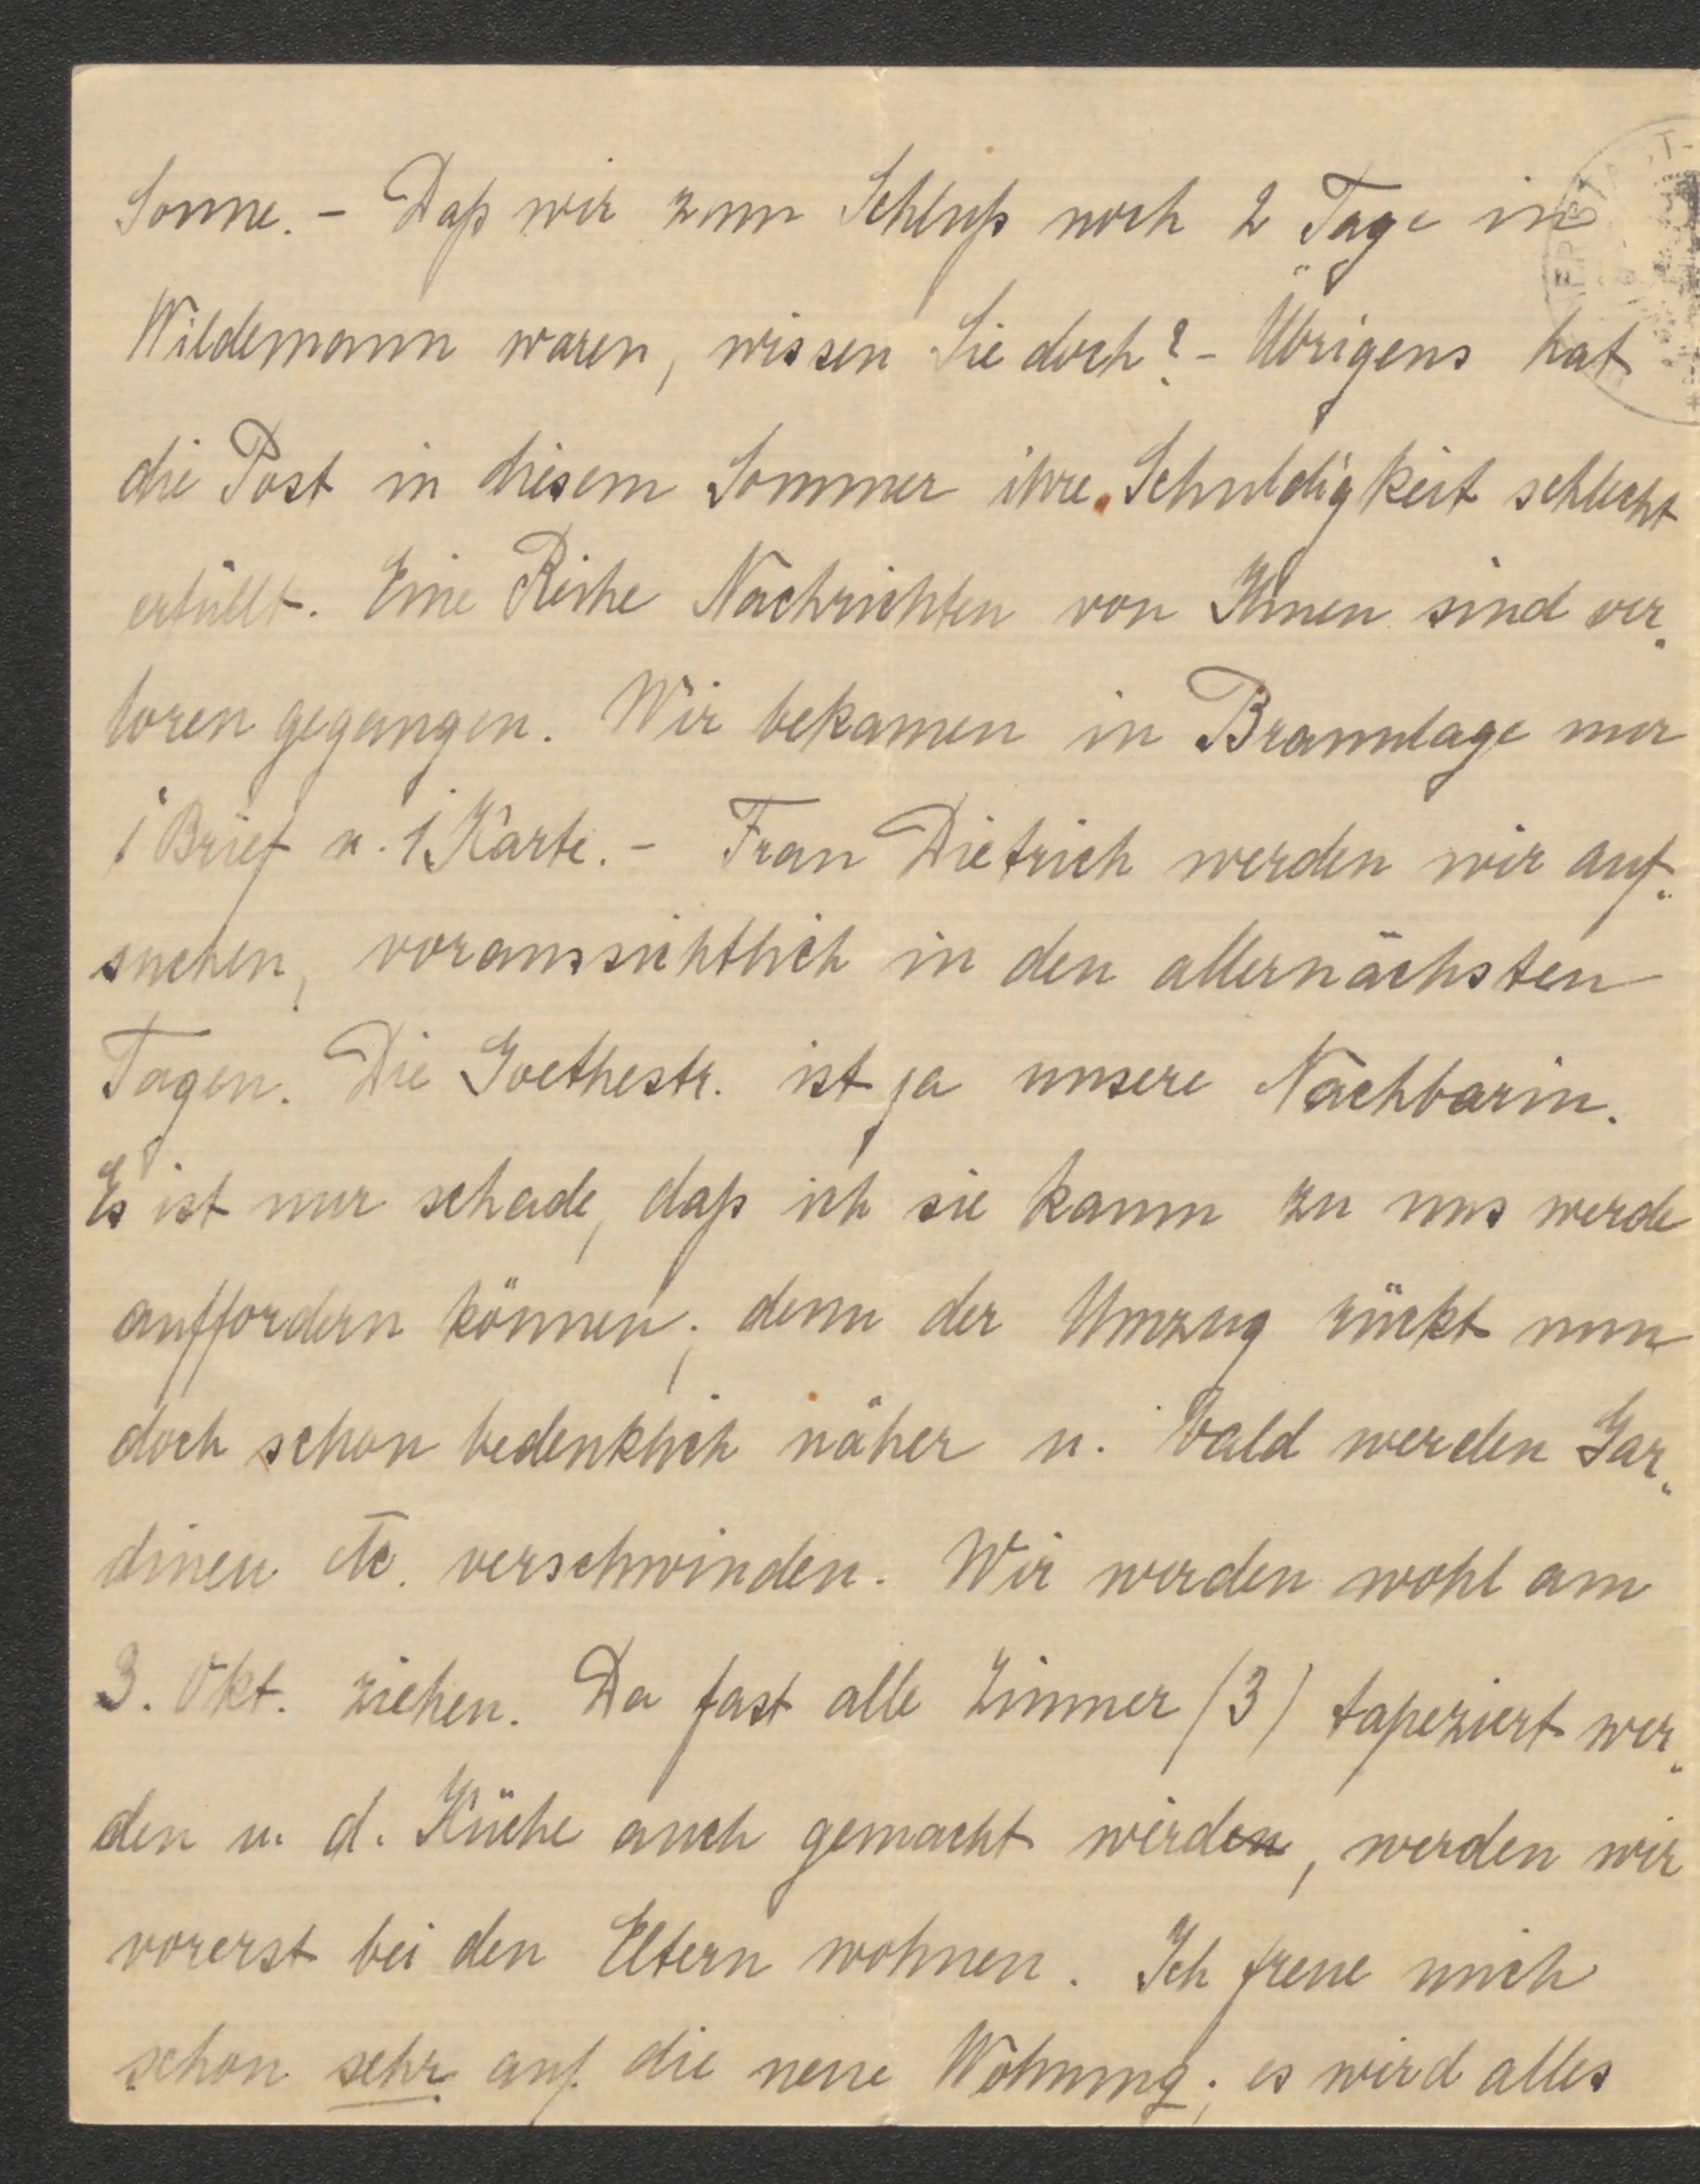 Sonne. - Daß wir zum Schluß noch 2 Tage in
Wildemann waren, wissen Sie doch? - Übrigens hat
die Post in diesem Sommer ihre Schuldigkeit schlecht
erfüllt. Eine Reihe Nachrichten von Ihnen sind ver„
loren gegangen. Wir bekamen in Braunlage nur
1 Brief u. 1 Karte. - Frau Dietrich werden wir auf„
suchen, voraussichtlich in den allernächsten
Tagen. Die Goethestr. ist ja unsere Nachbarin.
Es ist nur schade, daß ich sie kaum zu uns werde
auffordern können; denn der Umzug rückt nun
doch schon bedenklich näher u. bald werden Gar„
dinen etc. verschwinden. Wir werden wohl am
3. Okt. ziehen. Da fast alle Zimmer (3) tapeziert wer„
den u. d. Küche auch gemacht wirden, werden wir
vorerst bei den Eltern wohnen. Ich freue mich
schon sehr auf die neue Wohnung; es wird alles